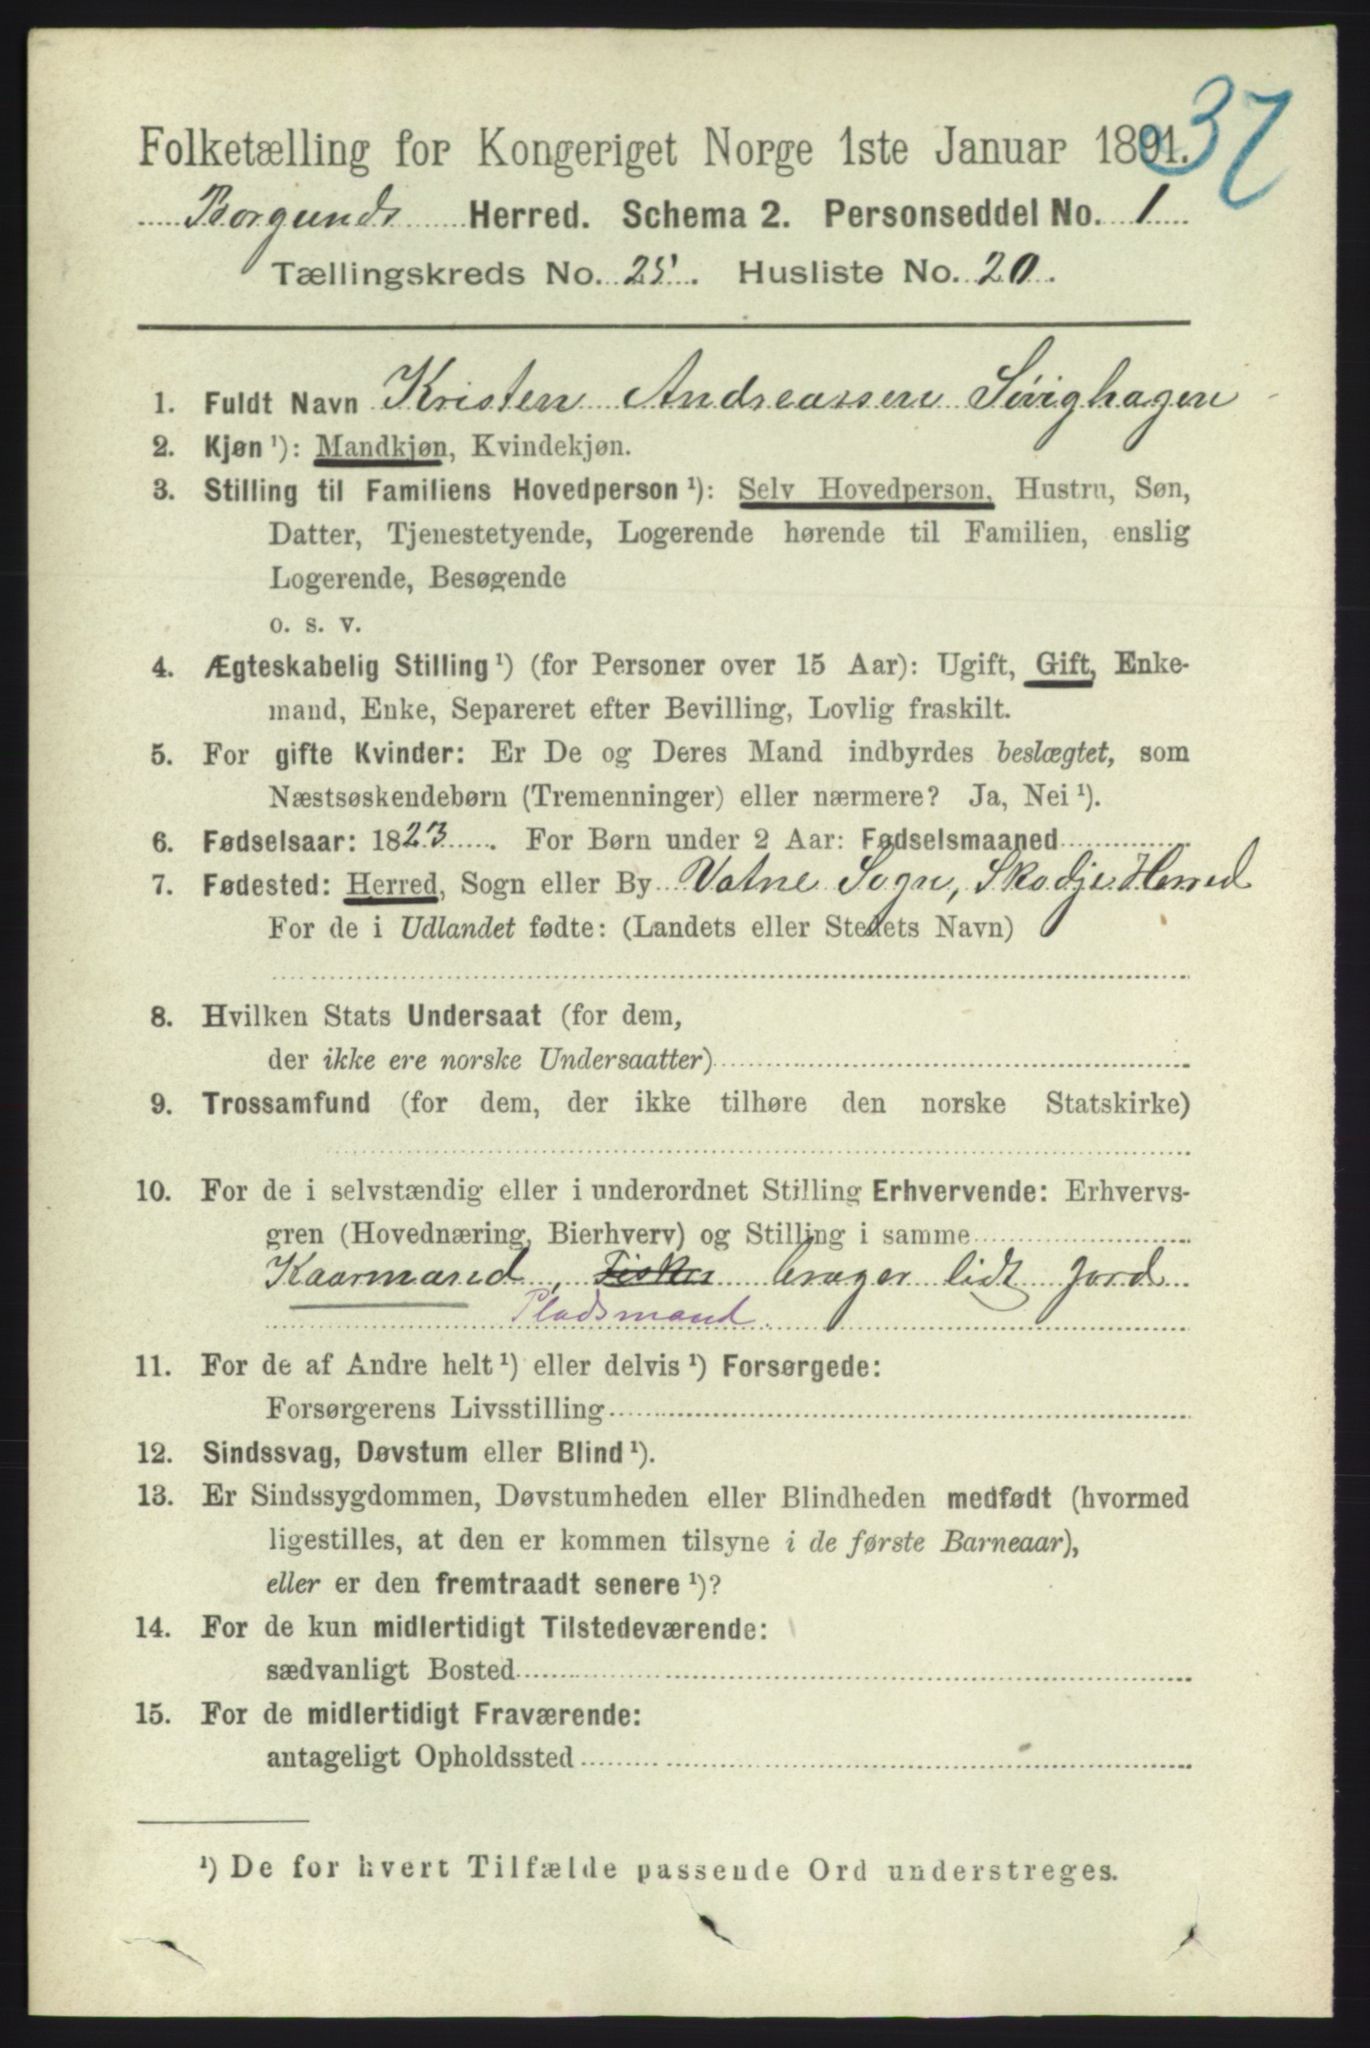 37
Folketælling for Kongeriget Norge 1ste Januar 1891.
Borgunds Herred. Schema 2. Personseddel No. 1
Tællingskreds No. 25. Husliste No. 20.
1. Fuldt Navn Kristen Andreassen Søvighagen
2. Kjøn ¹): Mandkjøn, Kvindekjøn.
3. Stilling til Familiens Hovedperson ¹): Selv Hovedperson, Hustru, Søn,
Datter, Tjenestetyende, Logerende hørende til Familien, enslig
Logerende, Besøgende
o. s. v.
4. Ægteskabelig Stilling ¹) (for Personer over 15 Aar): Ugift, Gift, Enke-
mand, Enke, Separeret efter Bevilling, Lovlig fraskilt.
5. For gifte Kvinder: Er De og Deres Mand indbyrdes beslægtet, som
Næstsøskendebørn (Tremenninger) eller nærmere? Ja, Nei ¹).
6. Fødselsaar: 1823. For Børn under 2 Aar: Fødselsmaaned
7. Fødested: Herred, Sogn eller By Vatne Sogn, Skodje Herred
For de i Udlandet fødte: (Landets eller Stedets Navn)
8. Hvilken Stats Undersaat (for dem,
der ikke ere norske Undersaatter)
9. Trossamfund (for dem, der ikke tilhøre den norske Statskirke)
10. For de i selvstændig eller i underordnet Stilling Erhvervende: Erhvervs-
gren (Hovednæring, Bierhverv) og Stilling i samme
Kaarmand, Fisker bruger lidt Jord
Pladsmand.
11. For de af Andre helt ¹) eller delvis ¹) Forsørgede:
Forsørgerens Livsstilling
12. Sindssvag, Døvstum eller Blind ¹).
13. Er Sindssygdommen, Døvstumheden eller Blindheden medfødt (hvormed
ligestilles, at den er kommen tilsyne i de første Barneaar),
eller er den fremtraadt senere ¹)?
14. For de kun midlertidigt Tilstedeværende:
sædvanligt Bosted
15. For de midlertidigt Fraværende:
antageligt Opholdssted
¹) De for hvert Tilfælde passende Ord understreges.